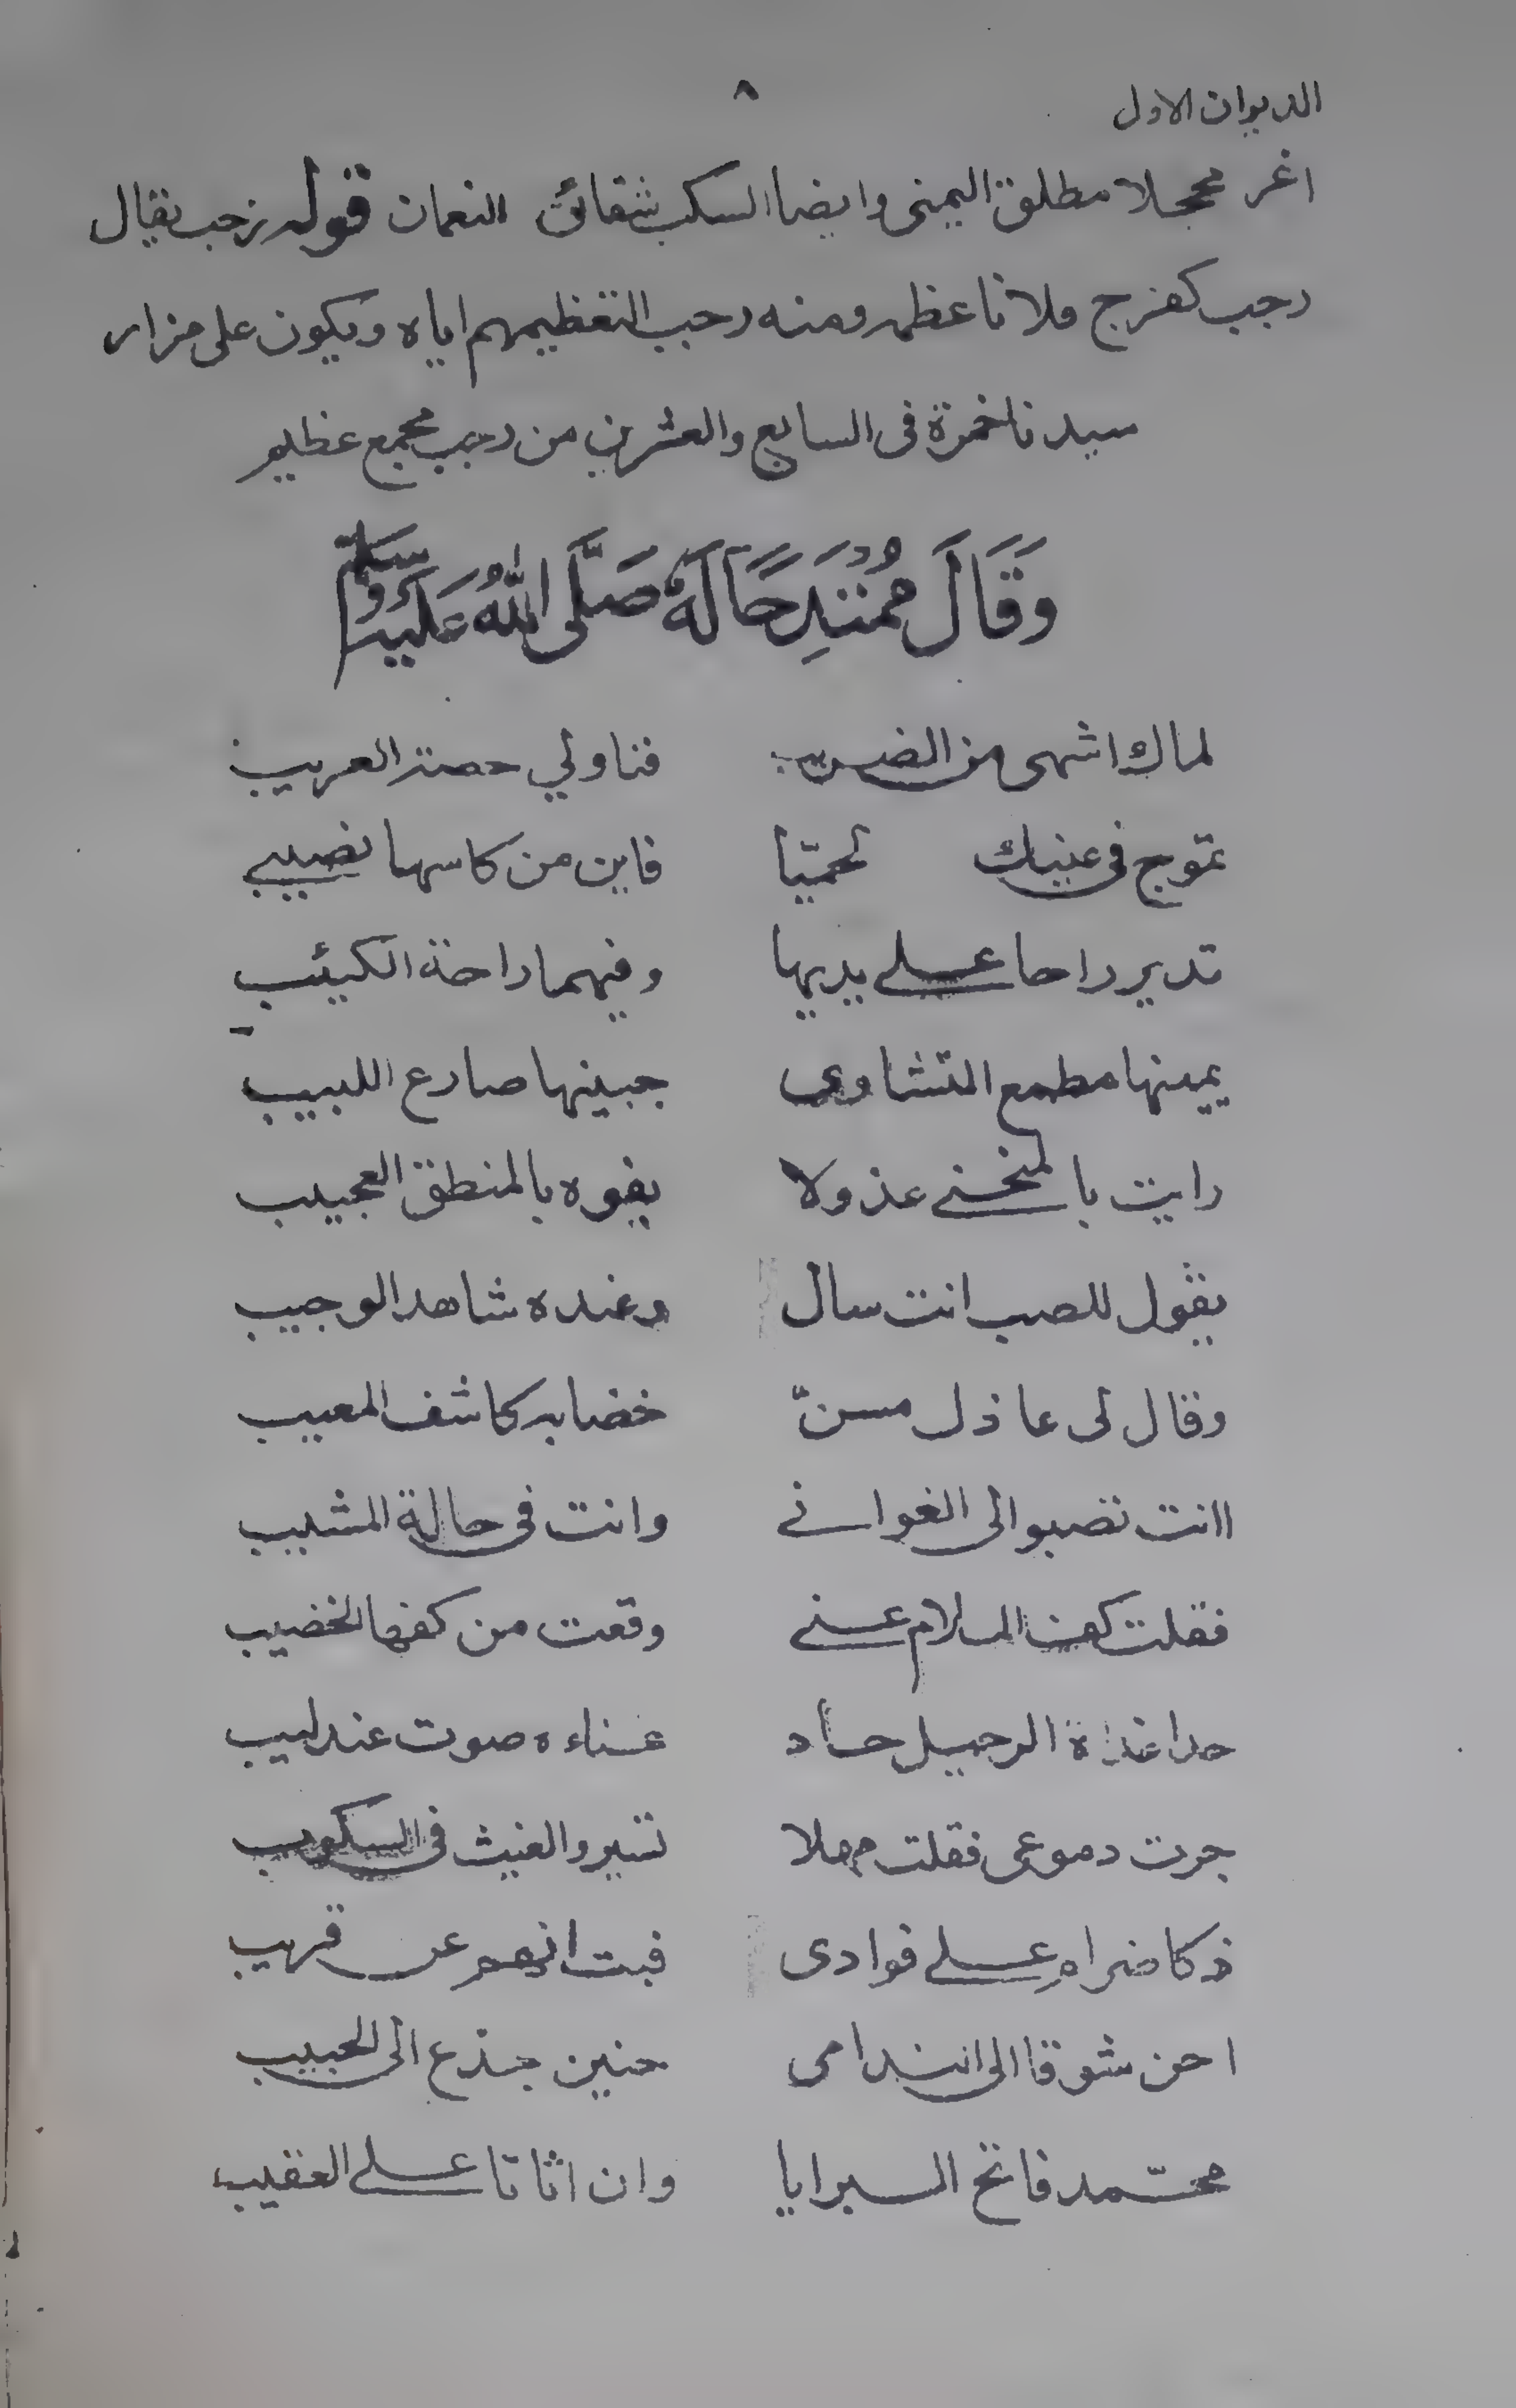 الديوان الاول
٨
اغر محجلا مطلق اليمنى وايضا السكب شقائق النعمان قوله رجب يقال
رجب كفرح فلانا عظمه ومنه رجب لتعظيمهم اياه ويكون على مزار
سيدنا حمزة فى السابع والعشرين من رجب مجمع عظيم
وَقَالَ مُمْتَدِحًا لَهُ صَلَّى اللهُ عَلَيْهِ وَسَلَّمَ
لماك اشهى من الضريب فناولي حصة الغريب
تموج فى عينيك الحميّا فاين من كاسها نصيبي
تدير راحا على يديها وفيهما راحة الكئيب
يمينها مطمع النشاوى جبينها صارع اللبيب
رايت بالمنحنى عذولا يفوه بالمنطق العجيب
يقول للصب انت سال وعنده شاهد الوجيب
وقال لى عاذل مسنّ خضابه كاشف المعيب
اانت تصبو الى الغواني وانت فى حالة المشيب
فقلت كف الملام عني وقعت من كفها الخضيب
حدا غداة الرحيل حاد غناءه صوت عندليب
جرت دموعى فقلت مهلا تسير والغيث فى السكوب
ذكا ضرام على فوادى فبت انهم عن قريب
احن شوقا الى الندامى حنين جذع الى الحبيب
محمّد فاتح البرايا وان اتانا على العقيب